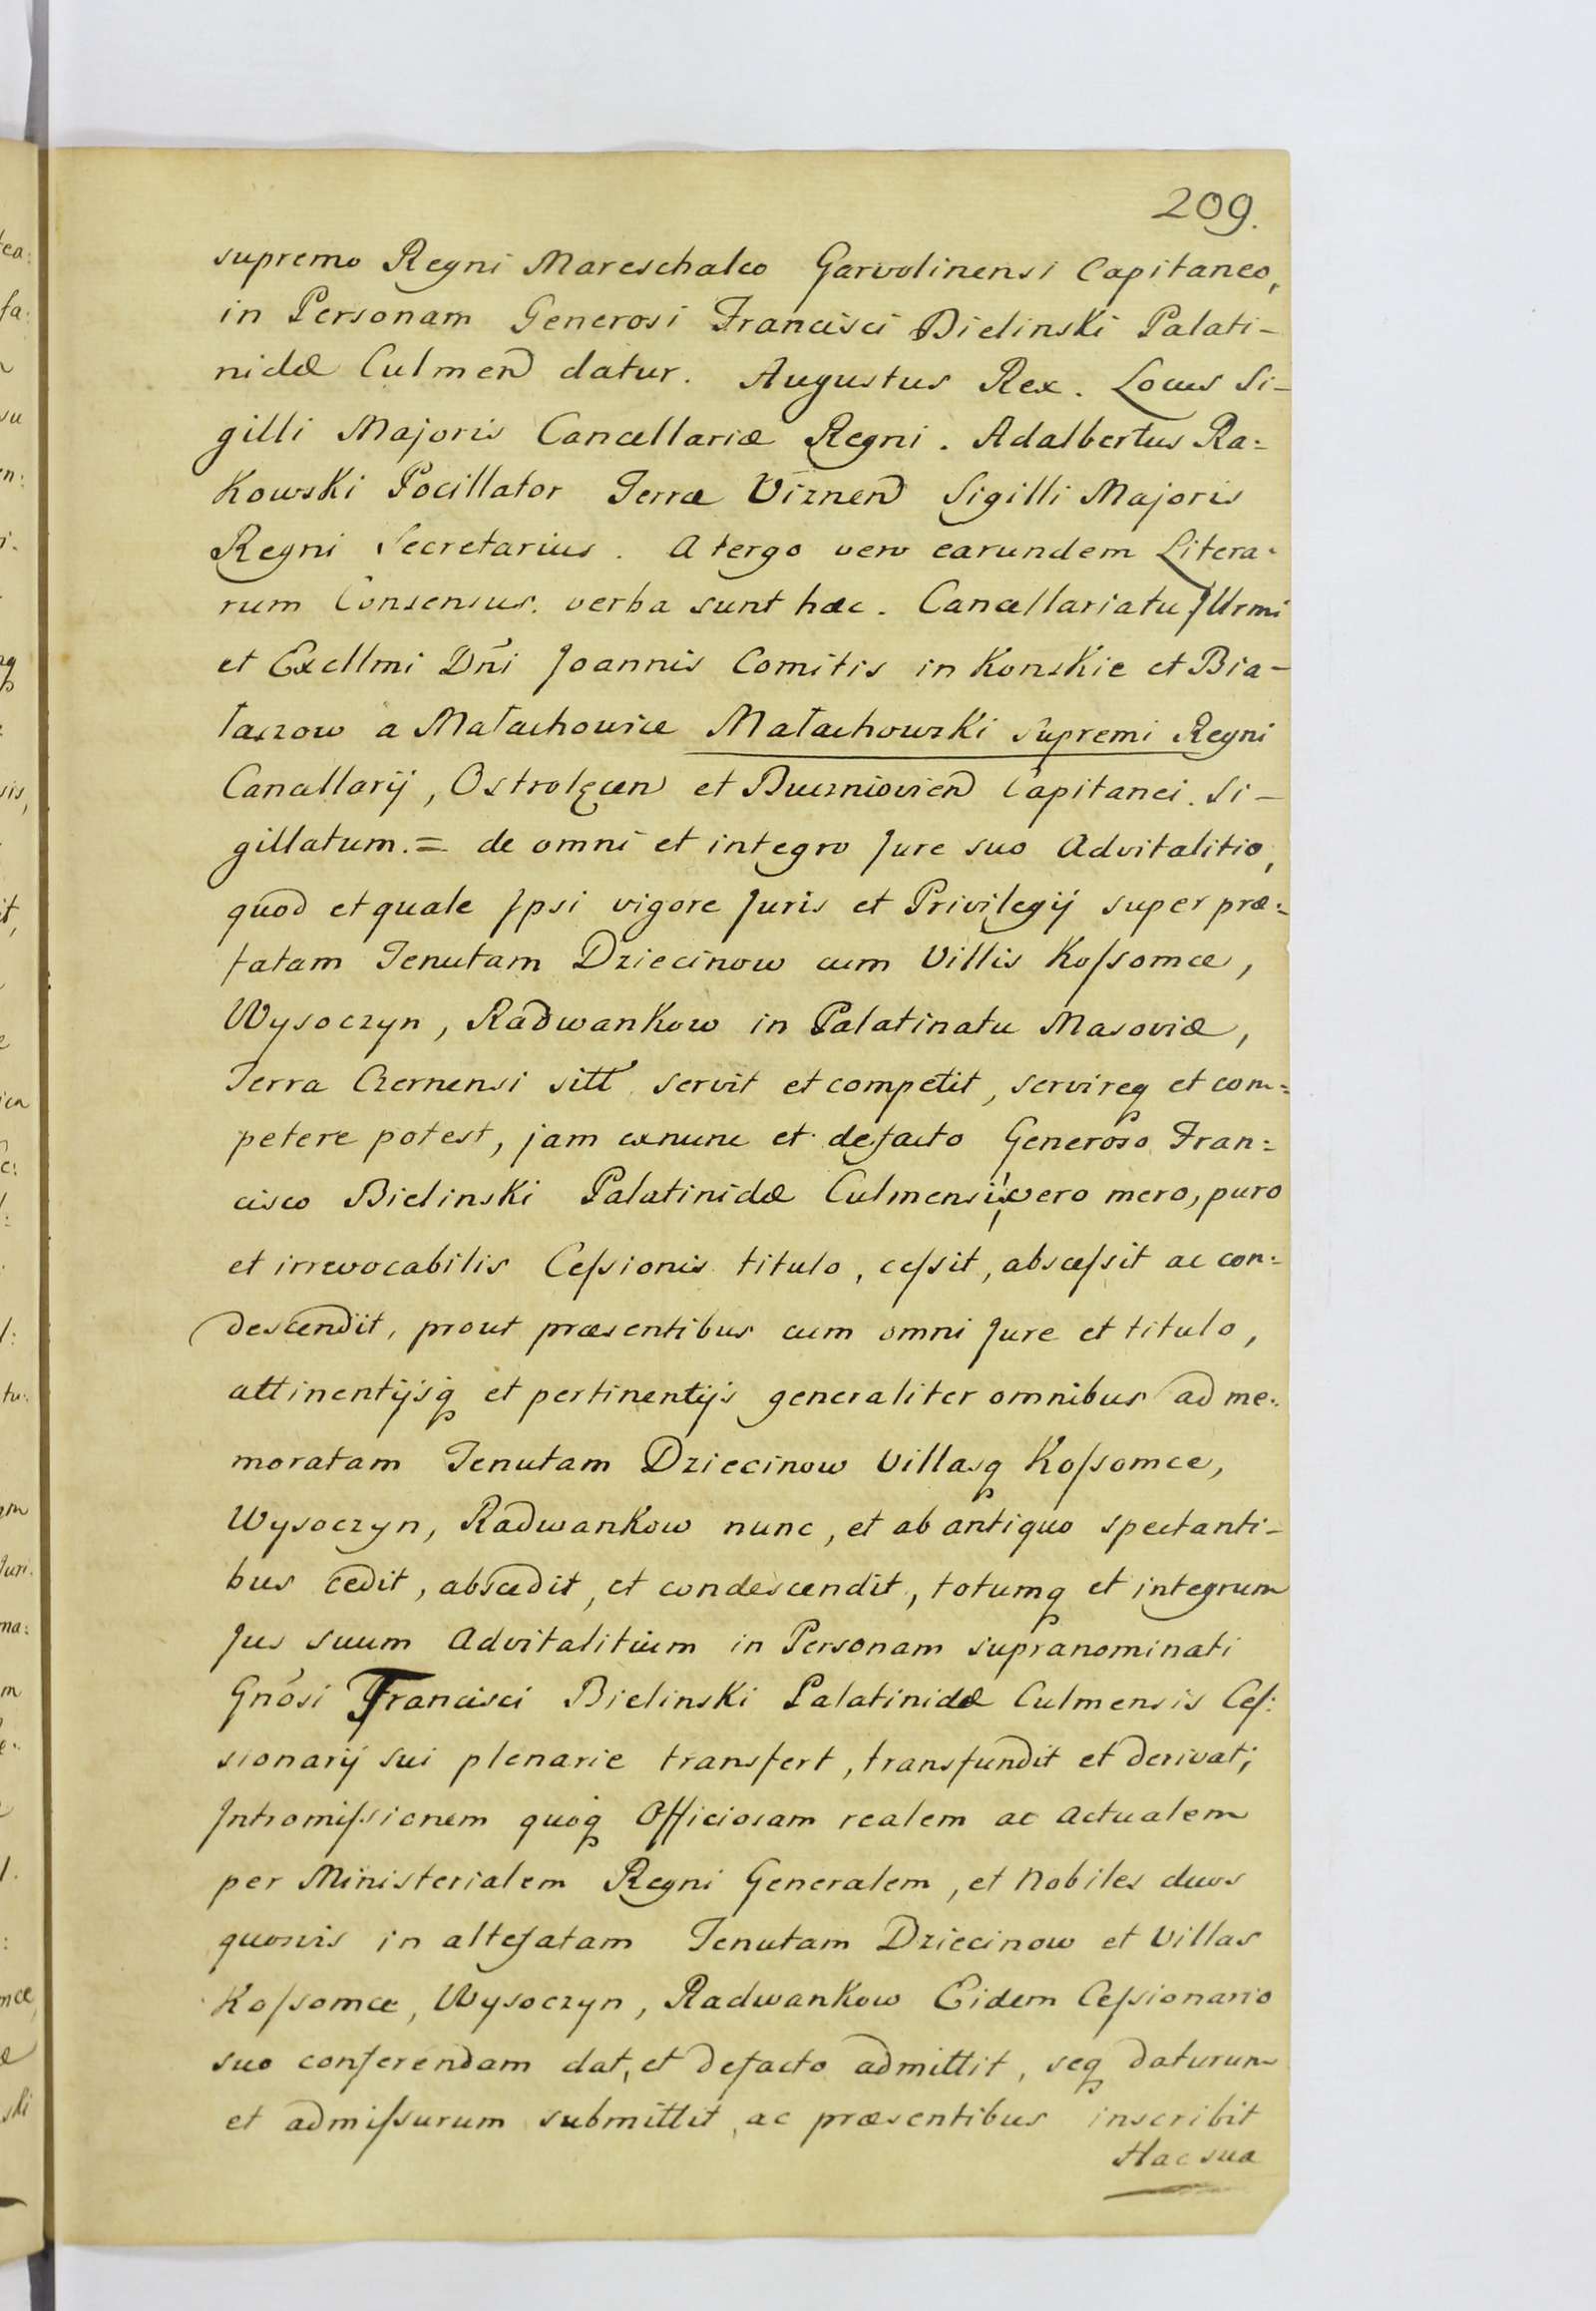 209.
supremo Regni Mareschalco Garvolinensi Capitaneo,
in Personam Generosi Francisci Bielinski Palati-
nidæ Culmen datur. Augustus Rex. Locus Si-
gilli Majoris Cancellariæ Regni. Adalbertus Ra:
kowski Pocillator Terræ Viznen Sigilli Majoris
Regni Secretarius. A tergo vero earundem Litera:
rum Consensus. verba sunt hæc. Cancellariatu Jllrmi
et Excllmi Dñi Joannis Comitis in Konskie et Bia-
łaczow a Małachowice Małachowski Supremi Regni
Cancellarij, Ostrolęcen et Buczniovien Capitanei. Si-
gillatum. = de omni et integro Jure suo Advitalitio,
quod et quale Jpsi vigore Juris et Privilegij super præ:
fatam Tenutam Dziecinow cum Villis Koſsomce,
Wysoczyn, Radwankow in Palatinatu Masoviæ,
Terra Czernensi sitt servit et competit, servireq et com:
petere potest, jam exnunc et defacto Generoso Fran:
cisco Bielinski Palatinidæ Culmensi vero mero, puro
et irrevocabilis Ceſsionis titulo, ceſsit, absceſsit ac con:
descendit, prout præsentibus cum omni Jure et titulo,
attinentijsq et pertinentijs generaliter omnibus ad me:
moratam Tenutam Dziecinow Villasq Koſsomce,
Wysoczyn, Radwankow nunc, et ab antiquo spectanti-
bus cedit, abscedit, et condescendit, totumq et integrum
Jus suum Advitalitium in Personam supranominati
Gnosi Francisci Bielinski Palatinidæ Culmensis Ceſ:
sionarij sui plenarie transfert, transfundit et derivat;
Jntromiſsionem quoq Officiosam realem ac actualem
per Ministerialem Regni Generalem, et Nobiles duos
quosvis in altefatam Tenutam Dziecinow et Villas
Koſsomce, Wysoczyn, Radwankow Eidem Ceſsionario
suo conferendam dat, et defacto admittit, seq daturum
et admiſsurum submittit, ac præsentibus inscribit
Hac sua